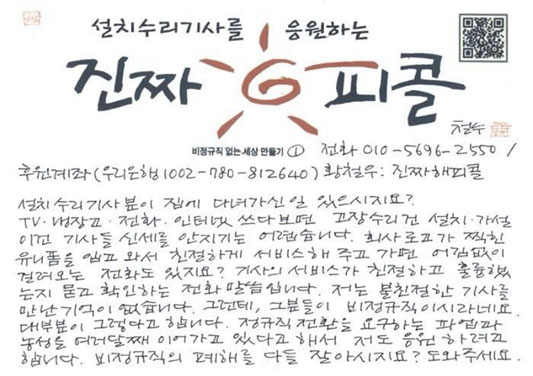 설치수리기사를 응원하는
진짜 해피콜
철수
비정규직 없는 세상 만들기 ① 전화 010-5696-2550 /
후원계좌 (우리은행 1002-780-812640) 황철우: 진짜해피콜
설치수리기사 분이 집에 다녀가신 일 있으시지요?
TV·냉장고·전화·인터넷 쓰다보면 고장수리건 설치·가설
이건 기사들 신세를 안지기는 어렵습니다. 회사로고가 찍힌
유니폼을 입고 와서 친절하게 서비스해 주고 가면 어김없이
걸려오는 전화도 있지요? 기사의 서비스가 친절하고 훌륭했
는지 묻고 확인하는 전화 말씀입니다. 저는 불친절한 기사를
만난 기억이 없습니다. 그런데, 그분들이 비정규직이시라네요.
대부분이 그렇다고 합니다. 정규직 전환을 요구하는 파업과
농성을 여러달째 이어가고 있다고 해서 저도 응원하려고
합니다. 비정규직의 폐해를 다들 잘 아시지요? 도와주세요.